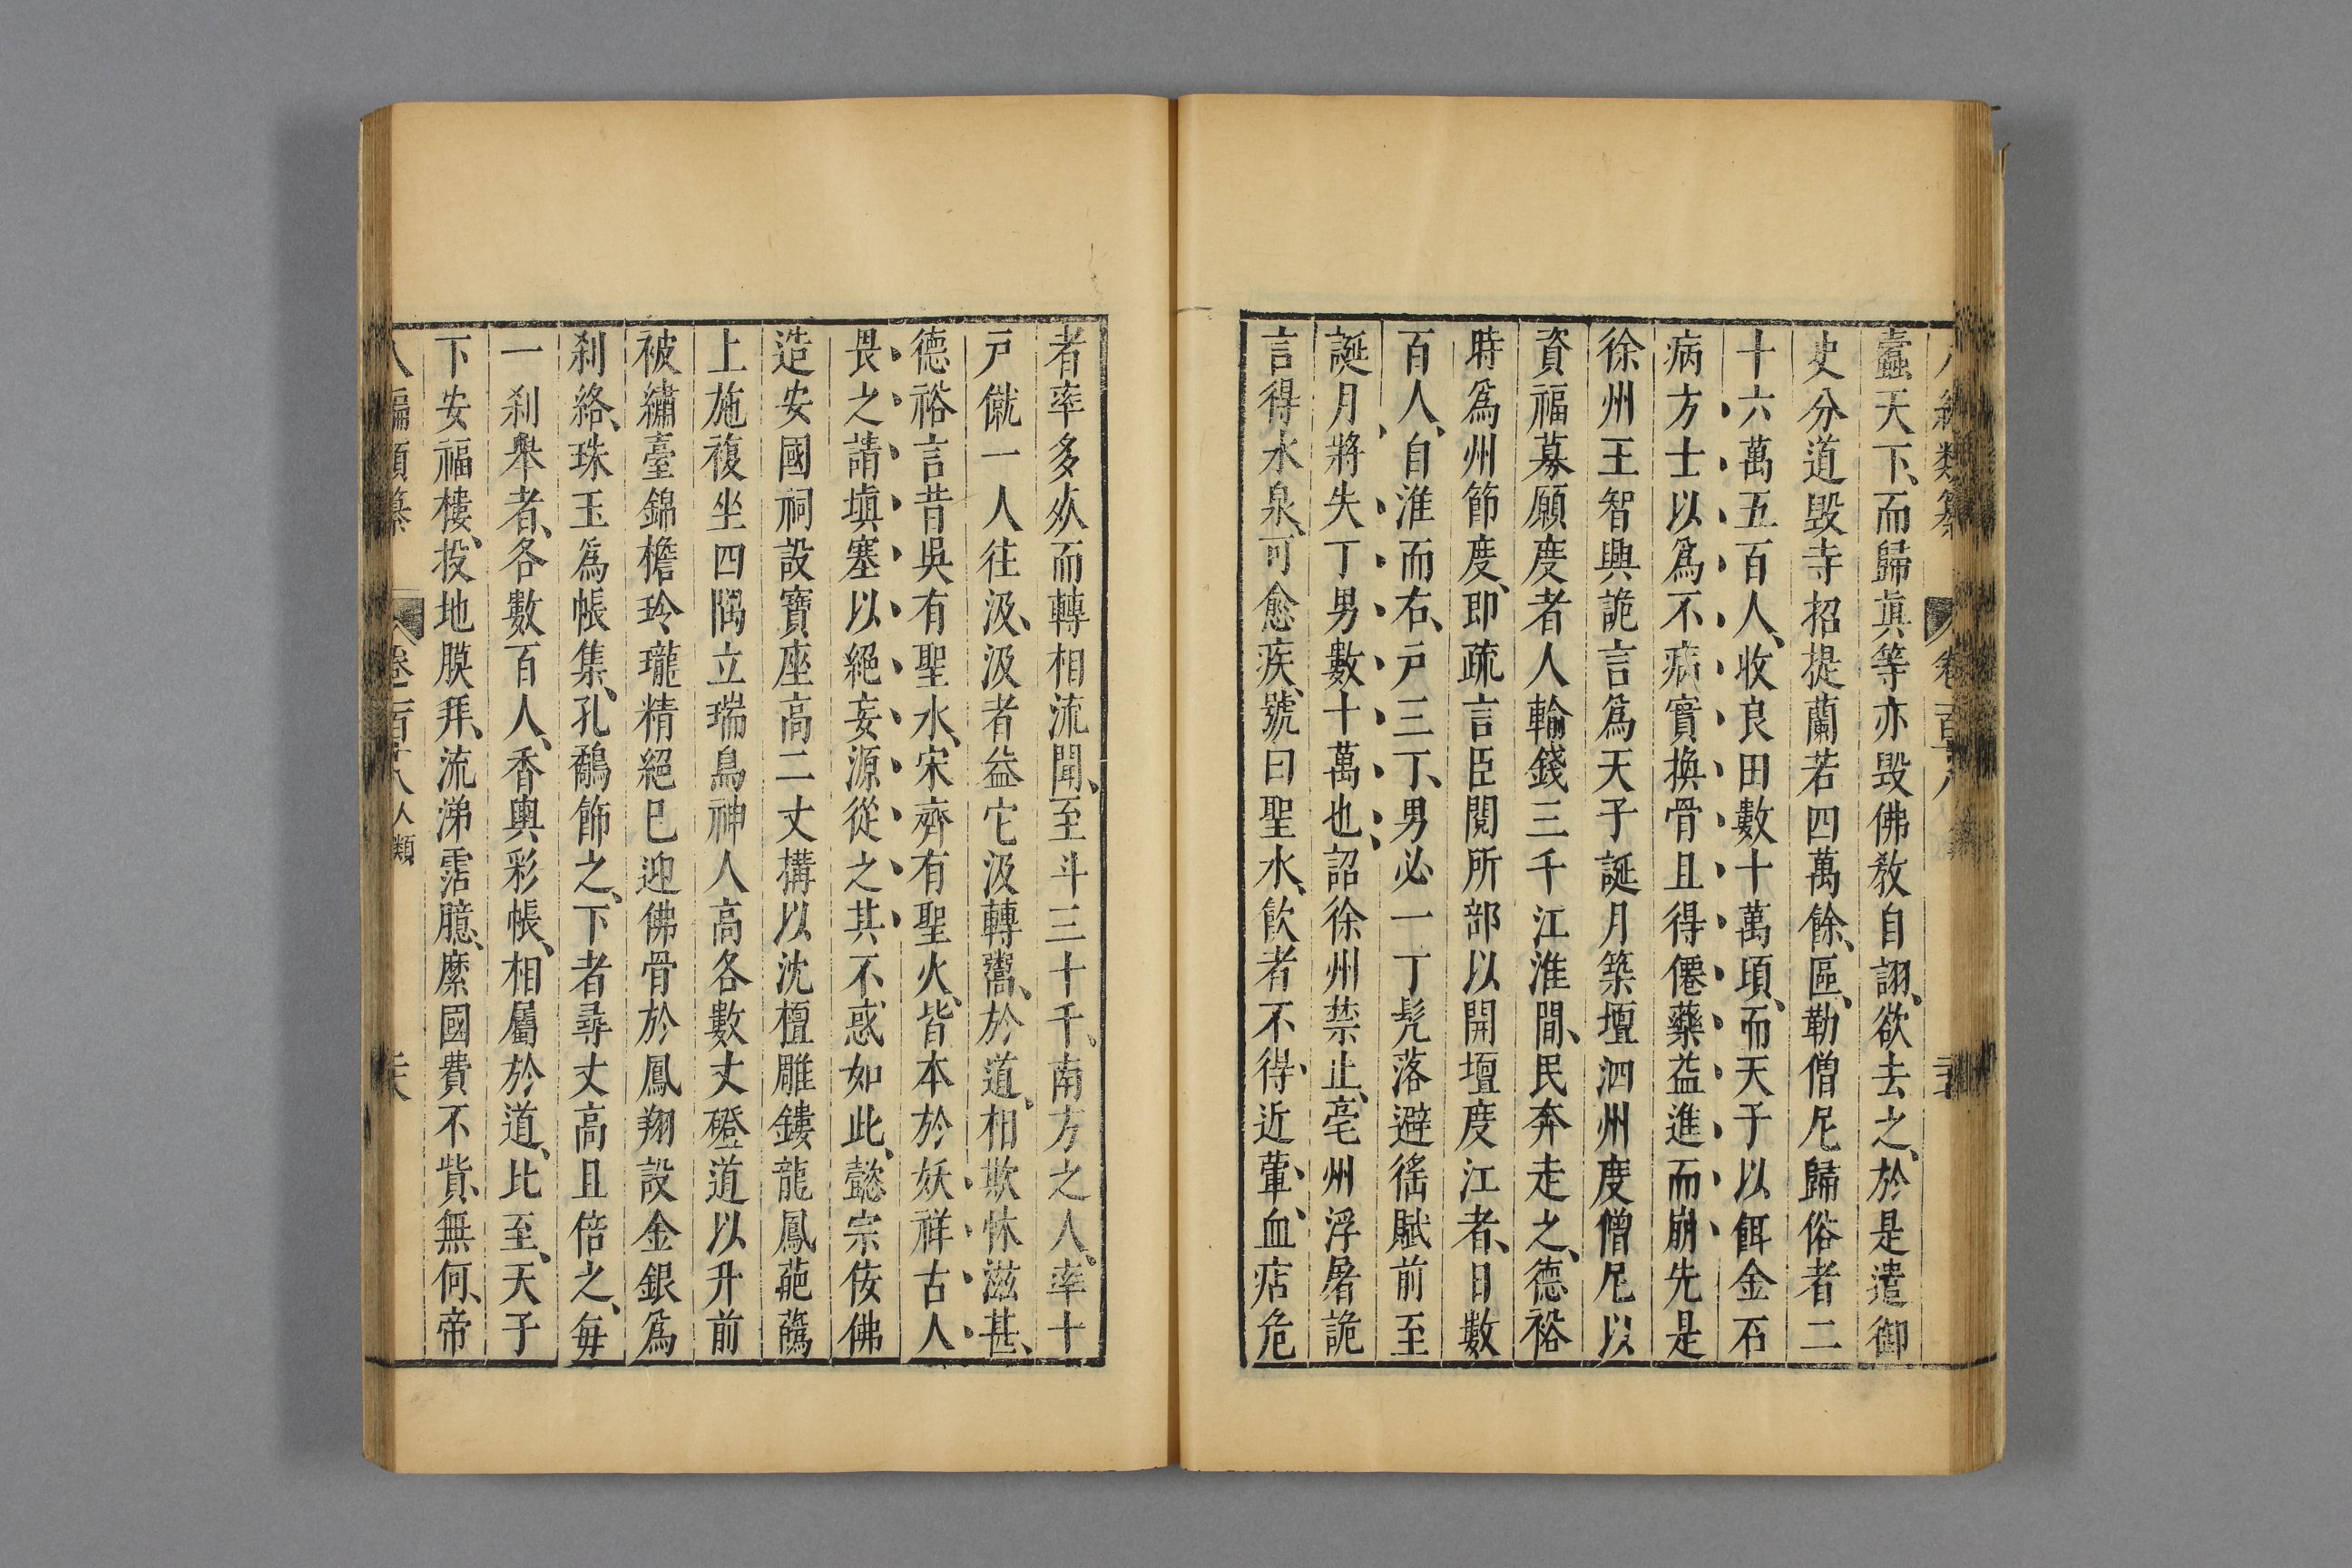 蠹天下、而歸眞等亦毁佛教自詡、欲去之、於是遣御
史分道毁寺招提蘭若四萬餘、區、勒僧尼歸俗者二
十六萬五百人、收良田數十萬頃、而天子以餌金石
病方士以爲不病實換骨且得僊藥益進而崩先是
徐州王智興詭言爲天子誕月築壇泗州度僧尼以
資福募願度者人輸錢三千江淮間、民奔走之、德裕
時爲州節度、即疏言臣閱所部以開壇度江者、日數
百人、自淮而右、戶三丁、男必一丁髠落避徭賦前至
誕月、將失丁男數十萬也、詔徐州禁止、亳州浮屠詭
言得水泉、可愈疾、號曰聖水、飲者不得、近葷、血痁危
者率多㱙而轉相流聞、至斗三十千、南方之人、率十
戶僦一人往汲、汲者益它汲轉鬻、於道、相欺怵滋甚、
德裕言昔吳有聖水、宋齊有聖火、皆本於妖祥古人
畏之請塡塞以絕妄源從之其不惑如此、懿宗佞佛
造安國祠設寶座高二丈構以沈檀雕鏤龍鳳葩蘤
上施複坐四隅立瑞鳥神人高各數丈磴道以升前
被繡臺錦檐玲瓏精絕巳迎佛骨於鳳翔設金銀爲
刹絡、珠玉爲帳集、孔鷸飾之、下者尋丈高且倍之、每
一刹舉者、各數百人、香輿彩帳、相屬於道、比至、天子
下安福樓、投地膜拜、流涕霑臆、縻國費不貲、無何、帝
八編類纂　卷二百十八人類